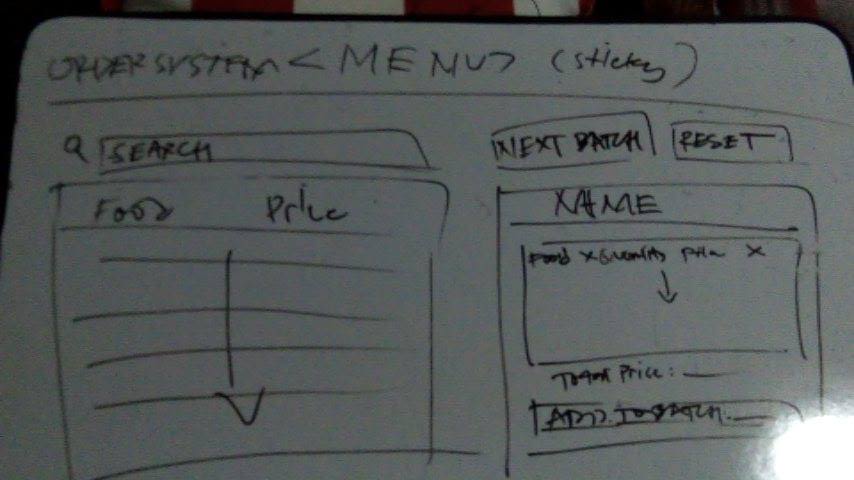 ORDERSYSTEM < MENU > (sticky)
SEARCH
NEXT BATCH
RESET
Food Price
NAME
Food x Quantity Price X
Total Price:
ADD TO BATCH